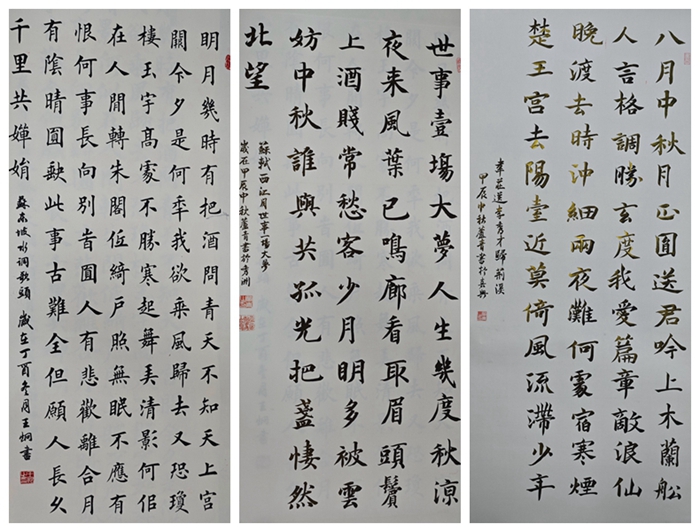 明月幾時有把酒問青天不知天上宮
闕今夕是何秊我欲乘風歸去又恐瓊
樓玉宇高處不勝寒起舞弄清影何佀
在人間轉朱閣低綺戶照無眠不應有
恨何事長向別旹圓人有悲歡離合月
有陰晴圓缺此事古難全但願人長久
千里共嬋娟
蘇東坡水調歌頭 歲在丁酉冬月王炯書
世事壹場大夢人生幾度秋涼
夜来風葉已鳴廊看取眉頭鬢
上酒賤常愁客少月明多被雲
妨中秋誰與共孤光把盞悽然
北望
蘇軾西江月世事一場大夢
歲在甲辰中秋蘆青書於秀洲
八月中秋月正圓送君吟上木蘭船
人言格調勝玄度我愛篇章敵浪仙
晚渡去時沖細雨夜灘何處宿寒煙
楚王宮去陽臺近莫倚風流滯少年
韋莊送李秀才歸荊溪
甲辰中秋蘆青書於嘉興